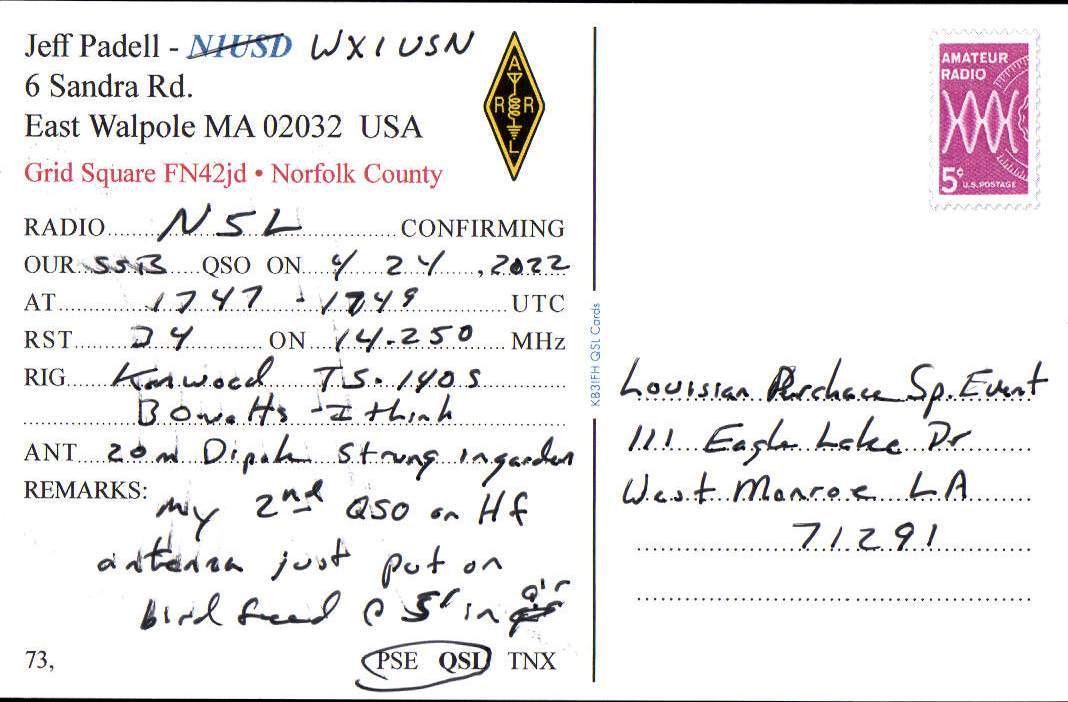 Jeff Padell - N1USD WX1USN
6 Sandra Rd.
East Walpole MA 02032 USA
Grid Square FN42jd • Norfolk County
A
R R
L
RADIO N5L CONFIRMING
OUR SSB QSO ON 4/24, 2022
AT 1747 - 1749 UTC
RST 34 ON 14.250 MHz
RIG Kenwood TS-140S
80watts - I think
ANT 20m Dipole strung in garden
REMARKS:
my 2nd QSO on Hf
antenna just put on
bird feed @ 5' in air
73,
PSE QSL TNX
KB3IFH QSL Cards
AMATEUR
RADIO
5¢ U.S. POSTAGE
Louisian Purchase Sp. Event
111 Eagle Lake Dr
West Monroe LA
71291